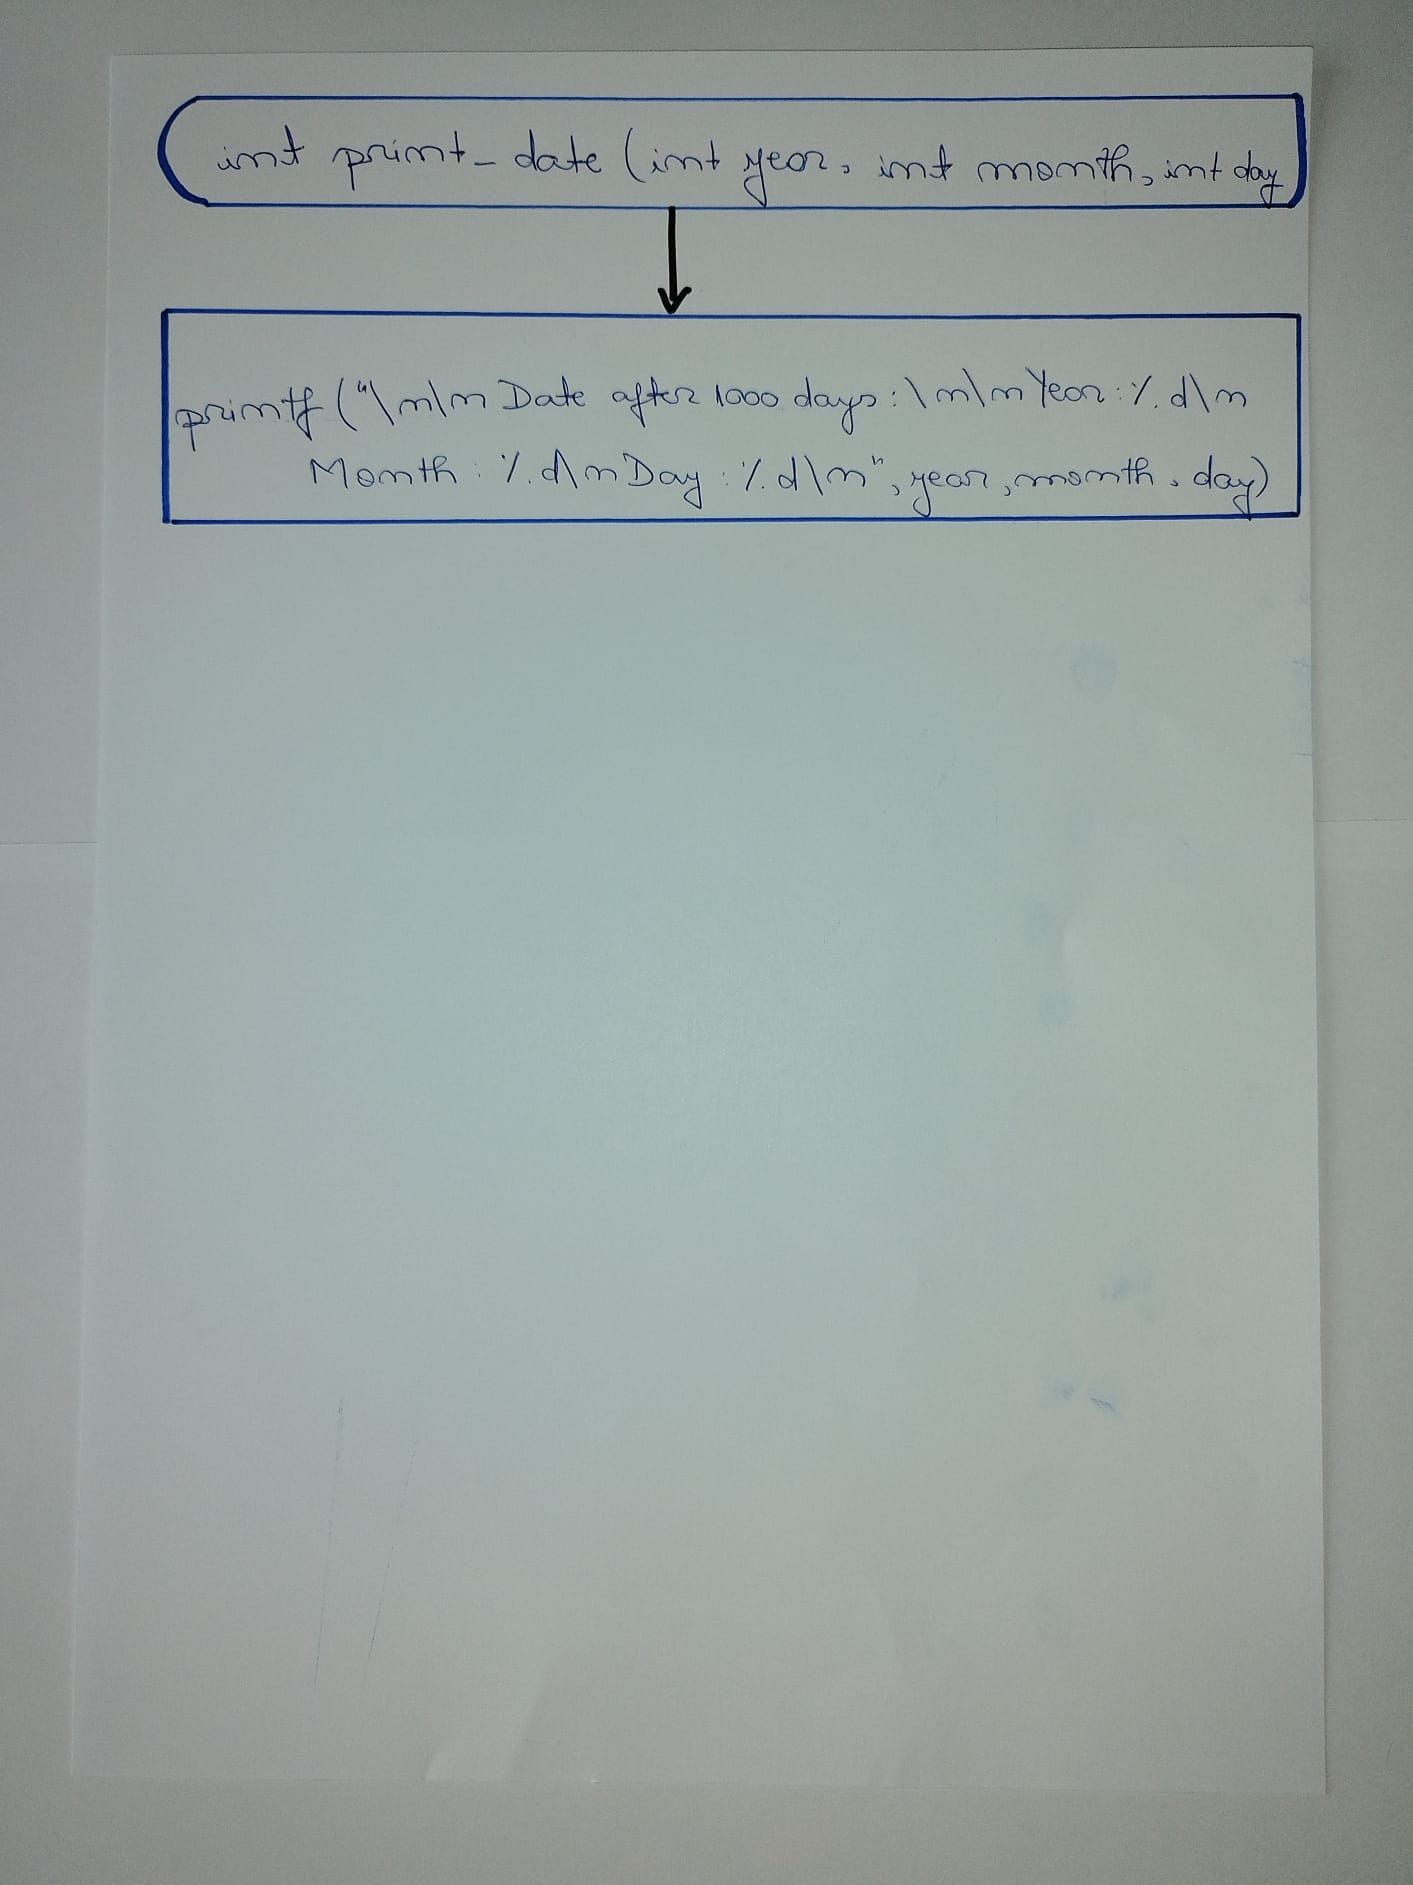 int print_date (int year, int month, int day
printf ("\n\n Date after 1000 days:\n\n Year:%d\n
Month:%d\n Day:%d\n", year, month, day)